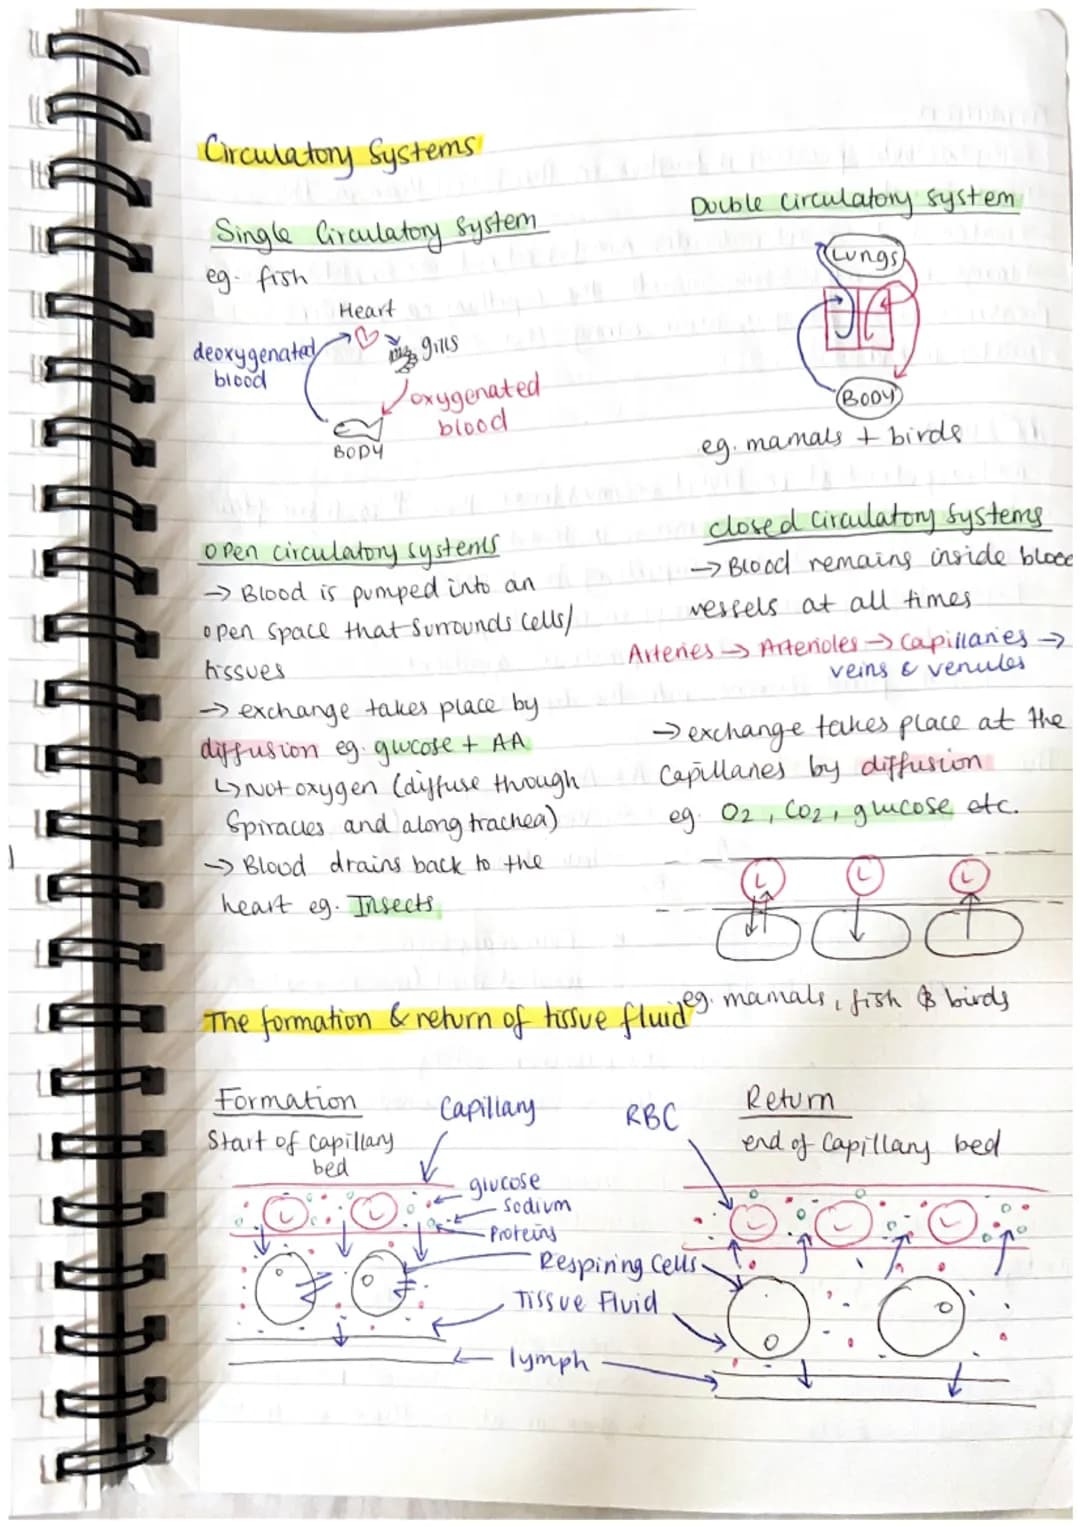 Circulatory Systems
Single Circulatory System
eg. fish
Heart
deoxygenated
blood
gills
oxygenated
blood
BODY
Double Circulatory System
Lungs
BODY
eg. mamals + birds
Open circulatory systems
→ Blood is pumped into an
open space that surrounds cells/
tissues
→ exchange takes place by
diffusion eg. glucose + AA
↳ Not oxygen (diffuse through
Spiracles and along trachea)
→ Blood drains back to the
heart eg. Insects
closed circulatory systems
→ Blood remains inside blood
vessels at all times
Arteries → Arterioles → Capillaries →
veins & venules
→ exchange takes place at the
Capillaries by diffusion
eg. O2, CO2, glucose etc.
eg. mamals, fish & birds
The formation & return of tissue fluid
Formation
Start of capillary
bed
Capillary
glucose
Sodium
Proteins
RBC
Return
end of Capillary bed
Respiring Cells
Tissue Fluid
lymph